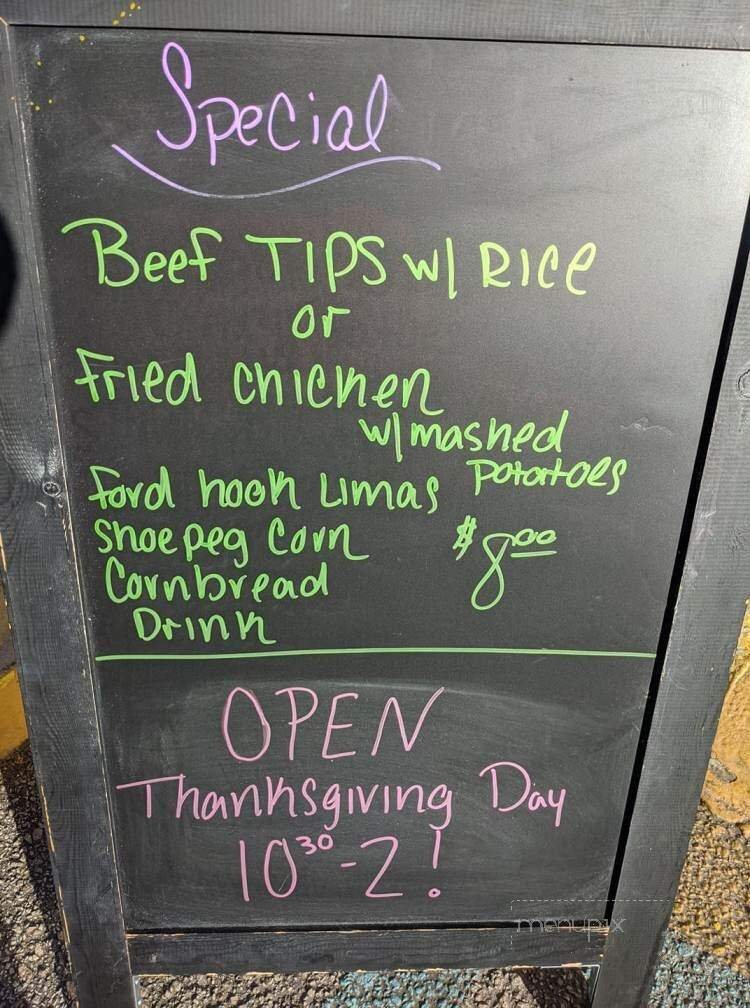 Special
Beef TIPS w/ RICE
or
Fried chicken
w/ mashed
potatoes
Ford hook Limas
Shoepeg Corn
$8.00
Cornbread
Drink
OPEN
Thanksgiving Day
10 30 - 2!
menupix